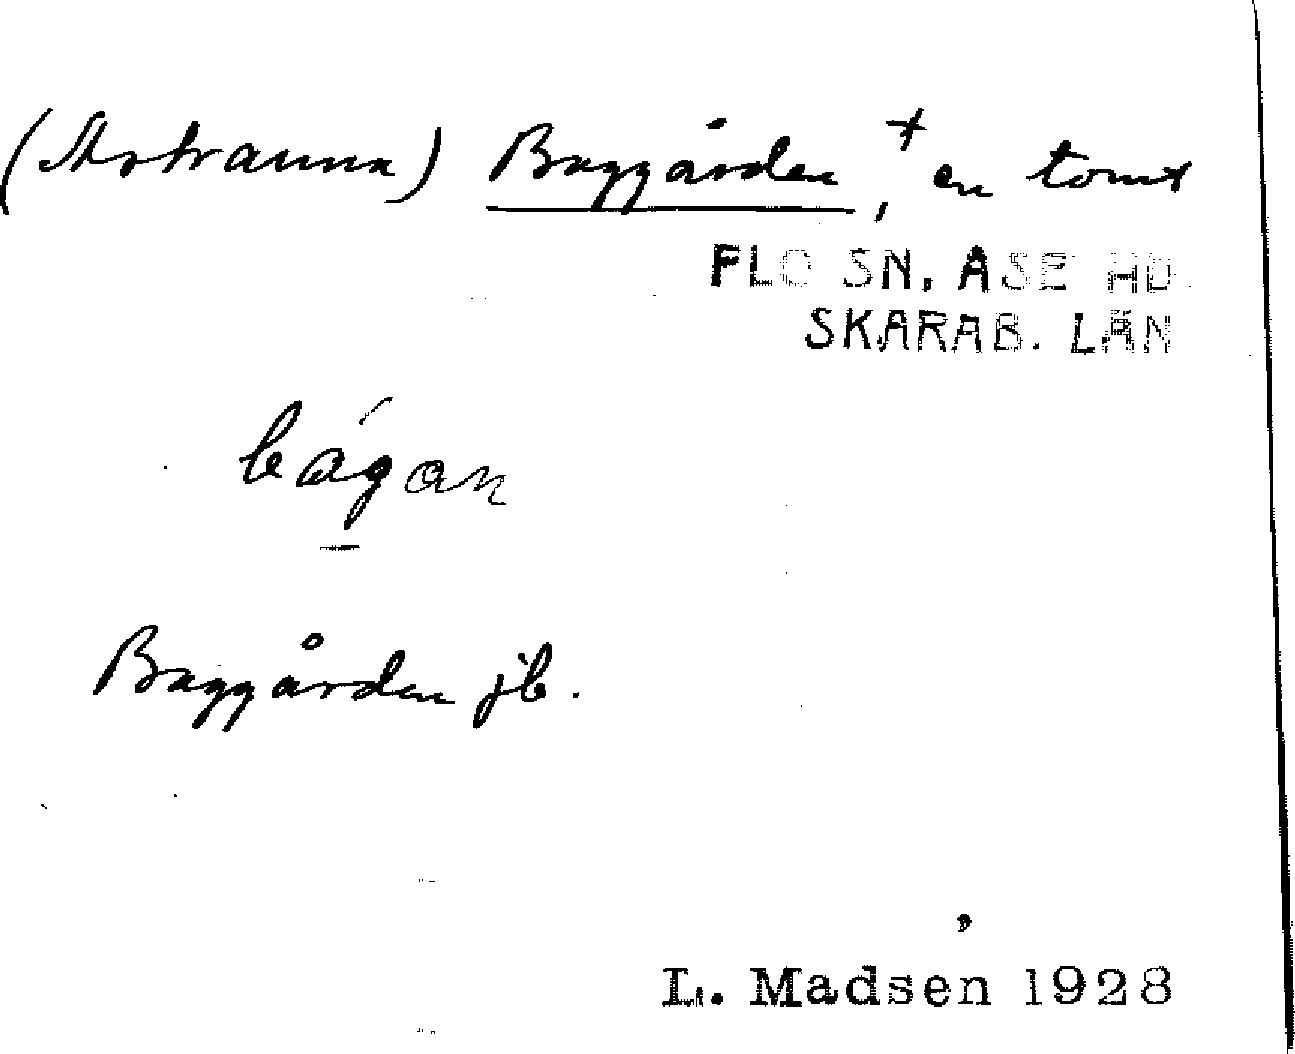 Baggården, + en tomt
FLO SN, ÅSE HD
SKARAB. LÄN
bágan
Baggården jb.
L. Madsen 1928